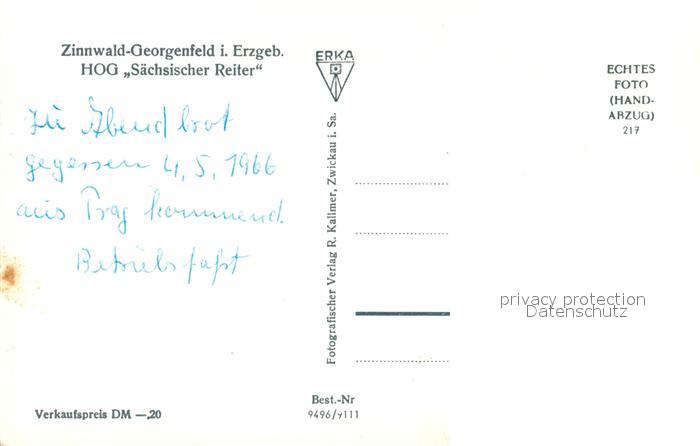 Zinnwald-Georgenfeld i. Erzgeb.
HOG „Sächsischer Reiter“
Zu Abendbrot
gegessen 4, 5, 1966
aus Prag kommend.
ERKA
Fotografischer Verlag R. Kallmer, Zwickau i. Sa.
ECHTES
FOTO
(HAND-
ABZUG)
217
privacy protection
Datenschutz
Verkaufspreis DM —,20
Best.-Nr
9496/y111